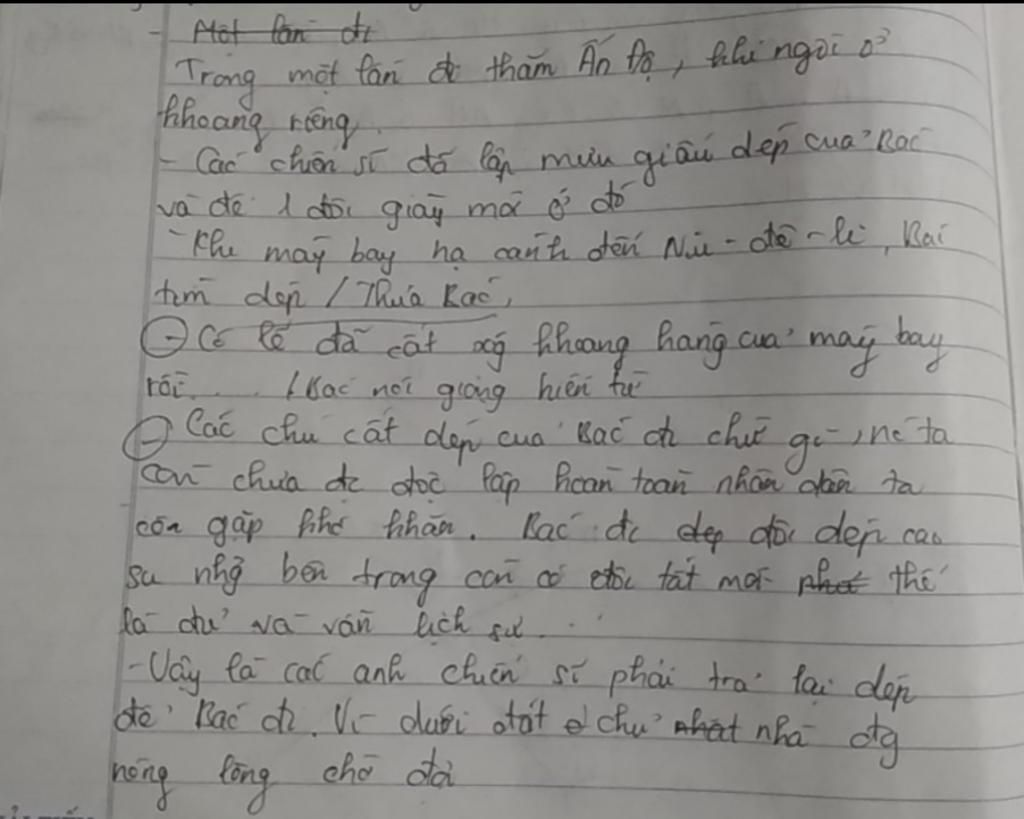 - Một lần đi
Trong một lần đi thăm Ấn Độ, khi ngồi ở
khoang riêng.
- Các chiến sĩ đã lập mưu giấu dép của Bác
và để 1 đôi giày mới ở đó
- Khi máy bay hạ cánh đến Niu-đê-li, Bác
tìm dép / Thưa Bác,
- Có lẽ đã cất xg khoang hàng của máy bay
rồi..... / Bác nói giọng hiền từ
- Các chú cất dép của Bác đi chứ gì, nc ta
còn chưa đc độc lập hoàn toàn nhân dân ta
còn gặp khó khăn. Bác đi dép đôi dép cao
su nhg bên trong còn có đôi tất mới phát thế
là đủ và vẫn lịch sự...
- Vậy là các anh chiến sĩ phải trả lại dép
để Bác đi. Vì dưới đất chủ nhật nhà đg
nóng lòng chờ đợi